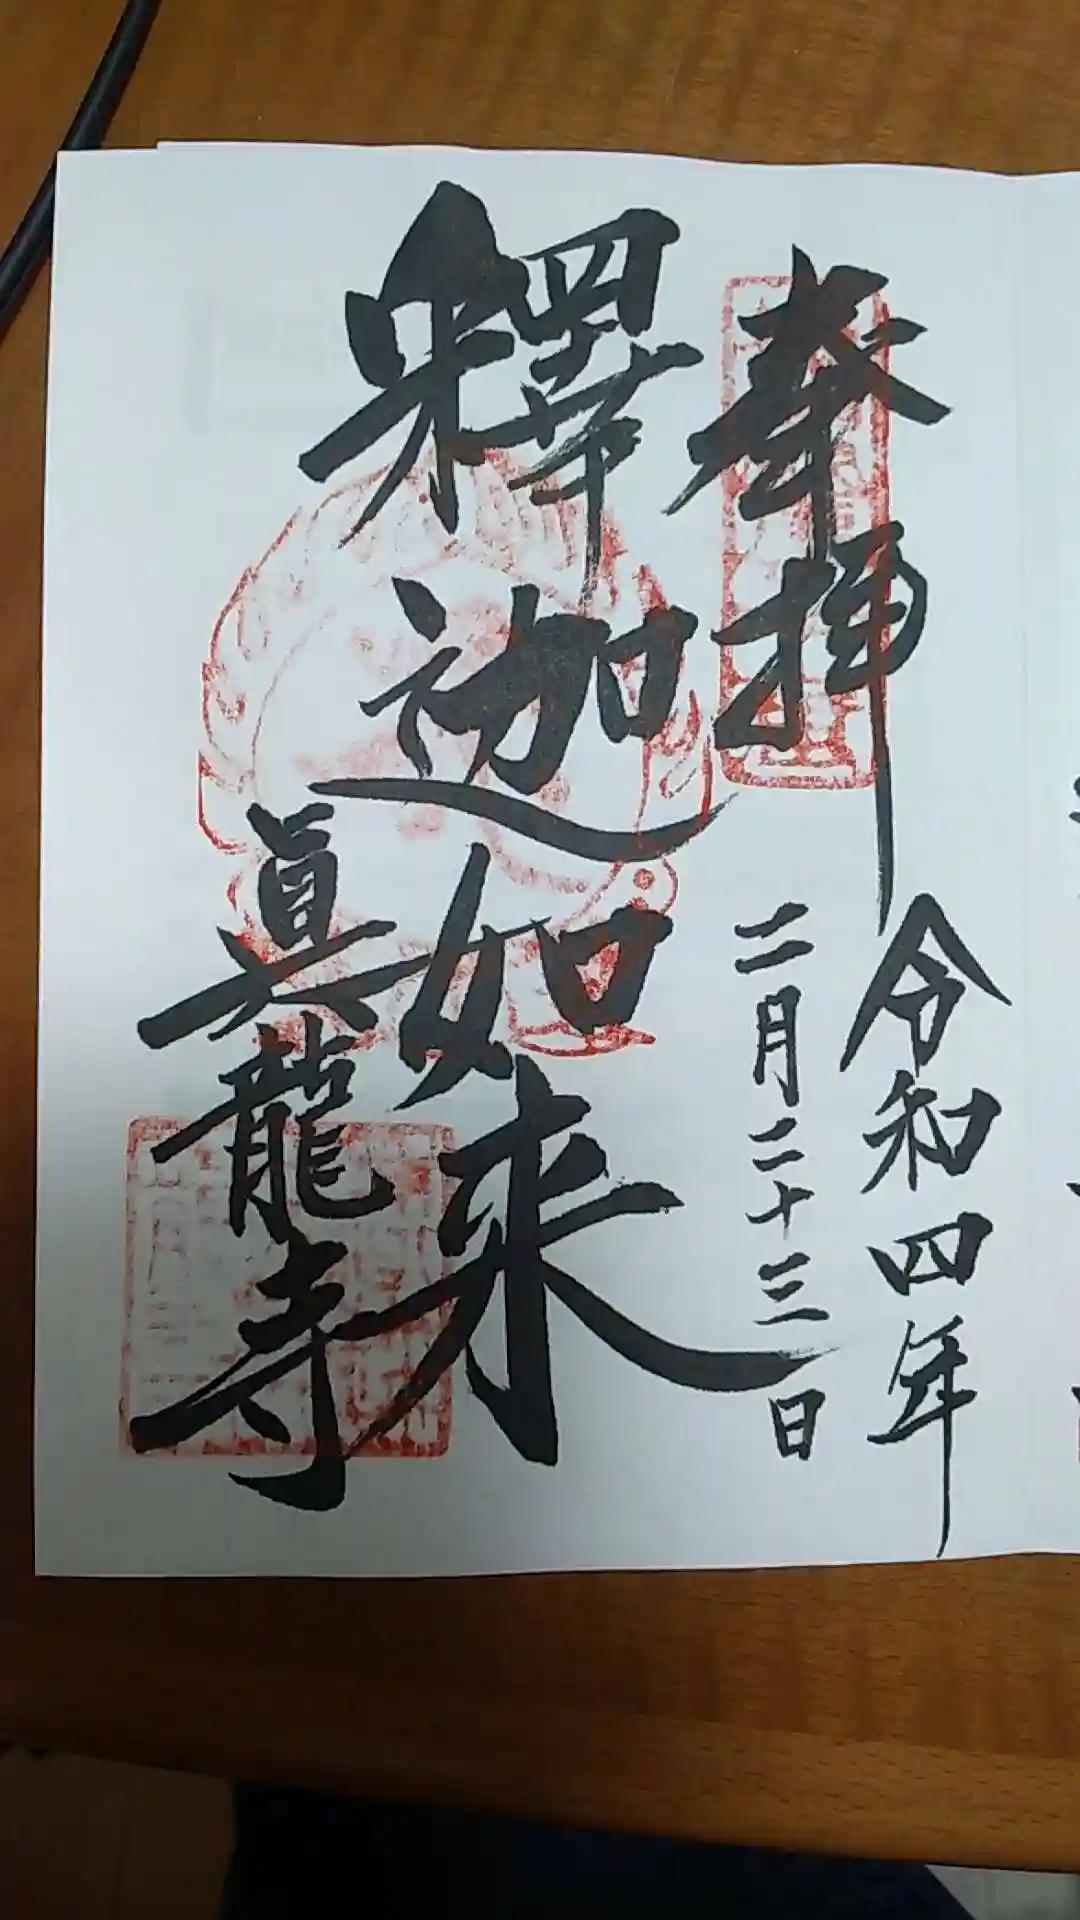 奉拝
令和四年
二月二十三日
釋迦如来
眞龍寺